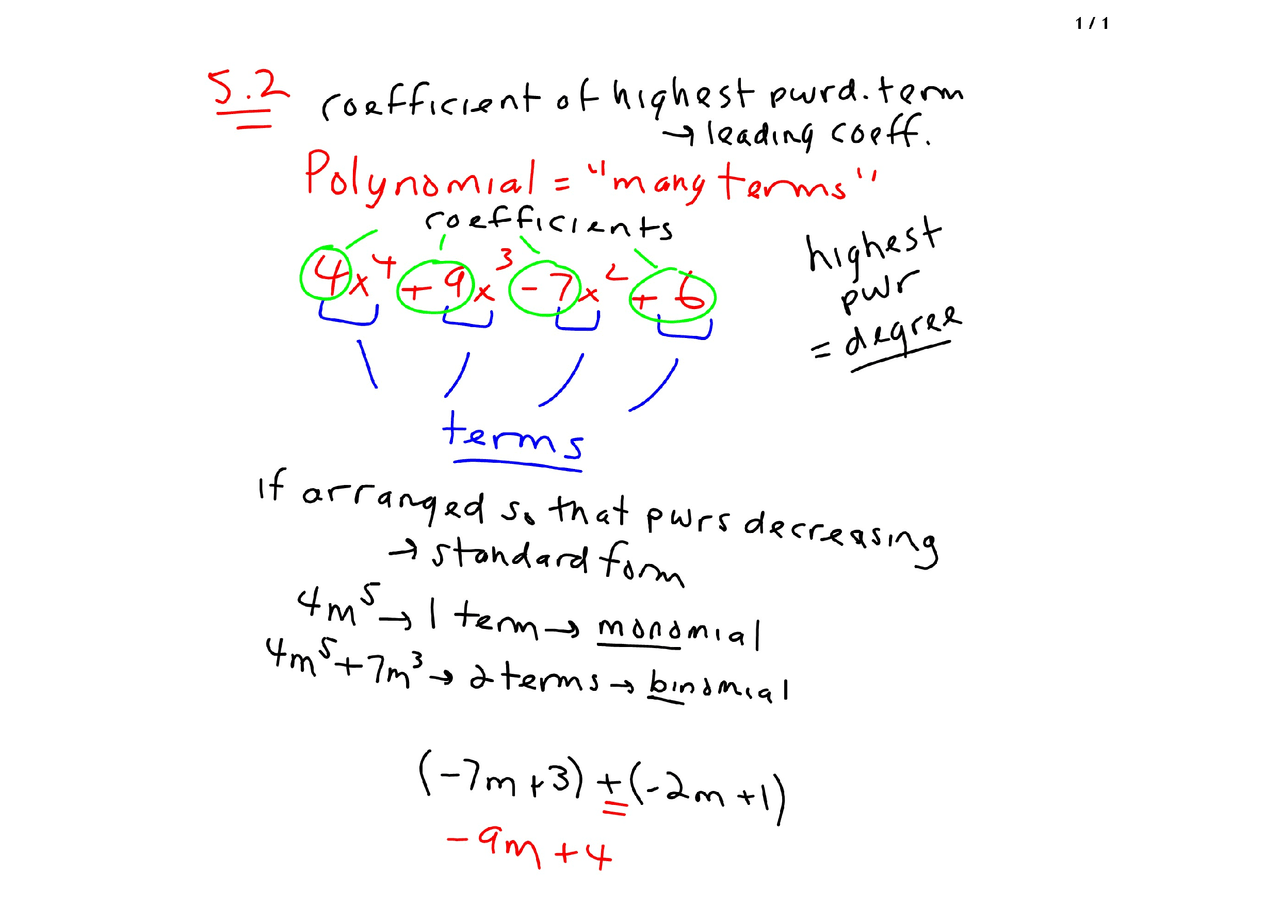 1 / 1
5.2 coefficient of highest pwrd. term
→ leading coeff.
Polynomial = "many terms"
coefficients
4x⁴ + 9x³ - 7x² + 6
highest
pwr
= degree
terms
If arranged so that pwrs decreasing
→ standard form
4m⁵ → 1 term → monomial
4m⁵ + 7m³ → 2 terms → binomial
(-7m + 3) + (-2m + 1)
-9m + 4